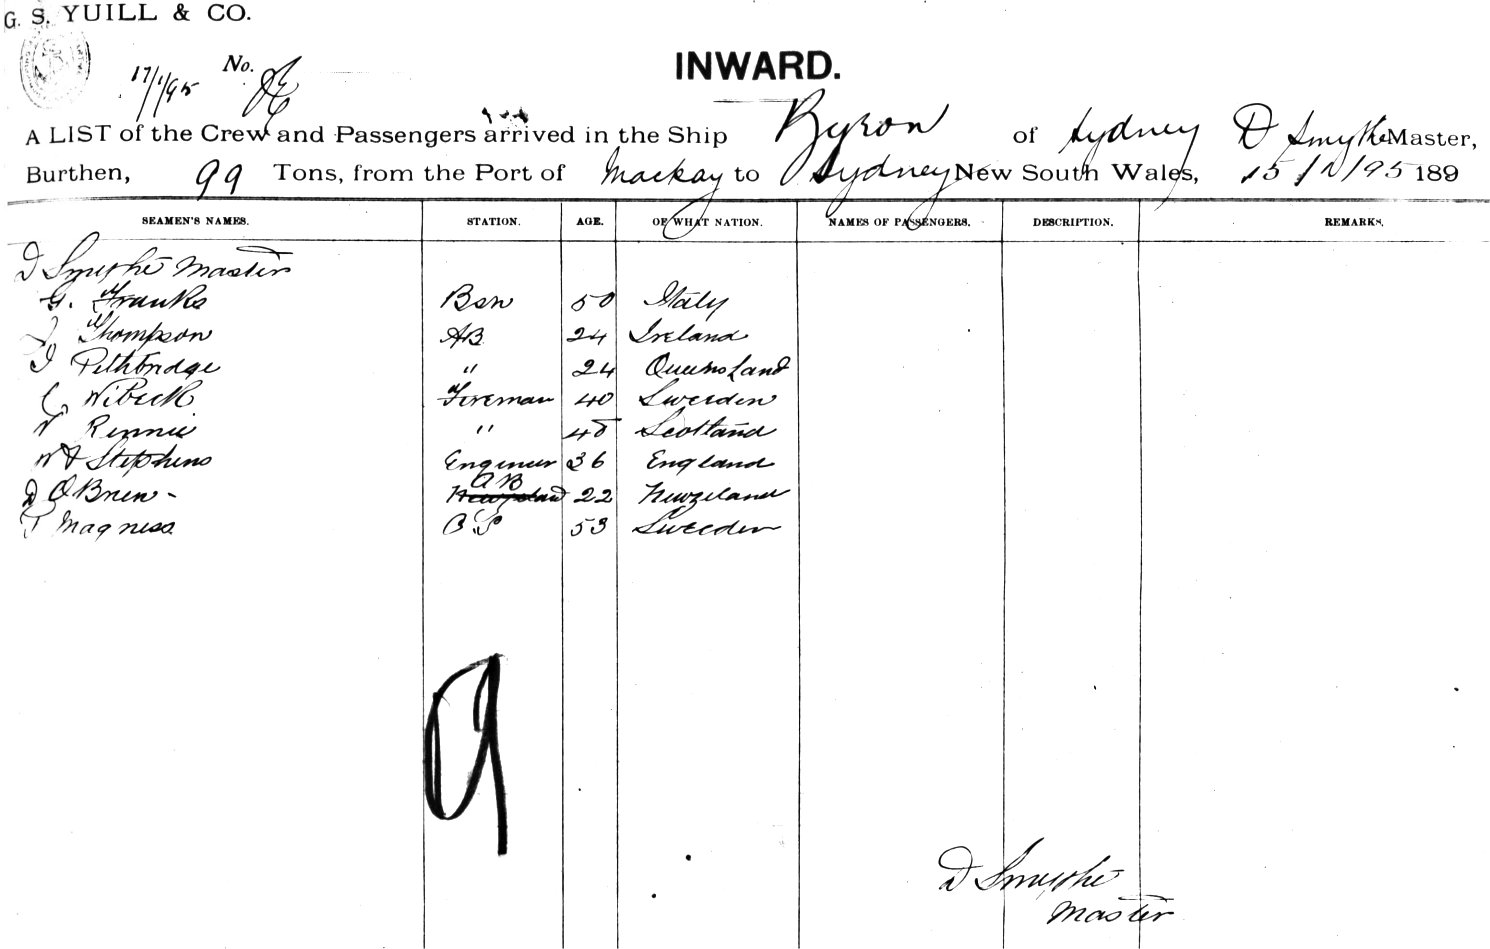 G. S. YUILL & CO.
17/1/95 No.
INWARD.
A LIST of the Crew and Passengers arrived in the Ship Byron of Sydney D Smythe Master,
Burthen, 99 Tons, from the Port of Mackay to Sydney New South Wales, 15/1/95 189
SEAMEN'S NAMES. STATION. AGE. OF WHAT NATION. NAMES OF PASSENGERS. DESCRIPTION. REMARKS.
D Smythe Master
G. Franks Bsn 50 Italy
Thompson AB 24 Ireland
Pethbridge " 24 Queensland
C Wibeck Fireman 40 Sweeden
Rennie " Scotland
W J Stephens Engineer 36 England
D O'Brien - AB 22 Newzeland
Magness 53 Sweeden
9
D Smythe
Master